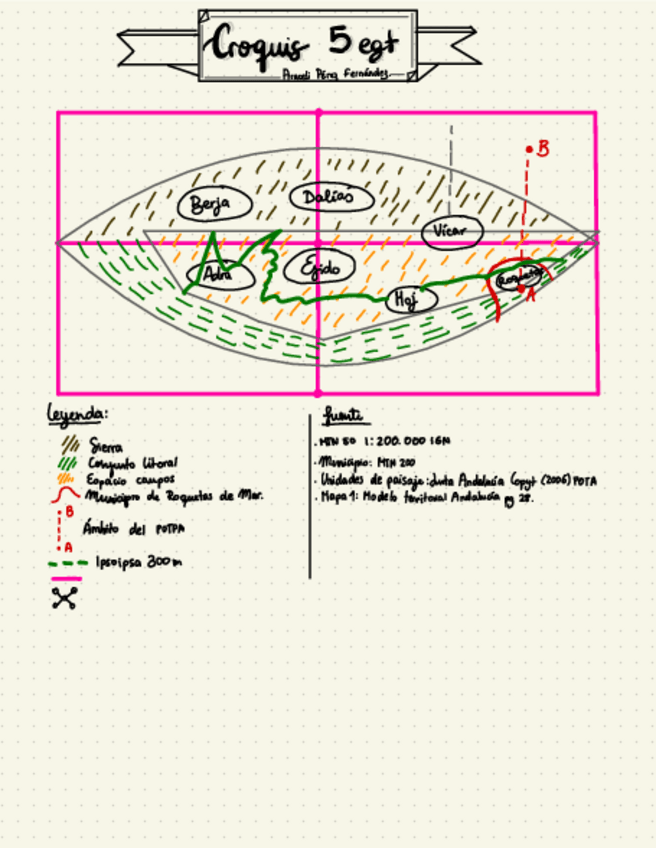 Croquis 5 egt
Araceli Pérez Fernández
B
Berja
Dalías
Vícar
Adra
Egido
Hoj
Roquetas
A
Leyenda:
Sierra
Conjunto litoral
Espacio campos
Municipio de Roquetas de Mar.
B
Ámbito del POTPA
A
Ipsoipsa 300m
fuente
. MTN 50 1:200.000 IGN
. Municipio: MTN 200
. Unidades de paisaje: Junta Andalucía Copyt (2006) POTA
. Mapa 1: Modelo territorial Andalucía pg 28.